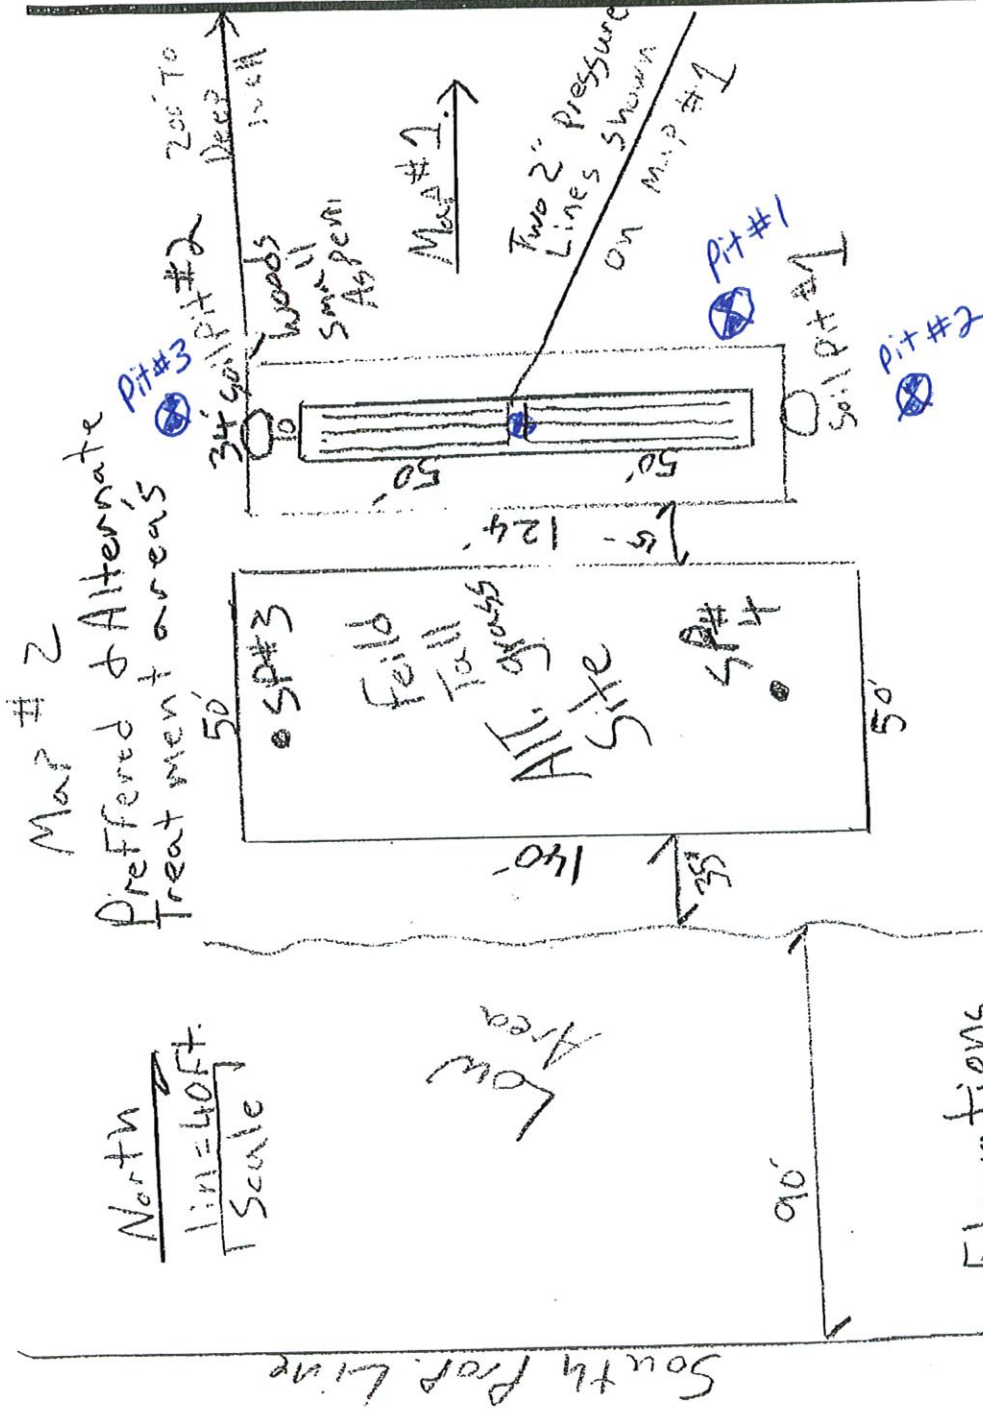 Map # 2
Preffered & Alternate
Treatment area's
North
1in=40Ft.
Scale
South Prop. Line
Low
Area
90'
35'
140'
50'
50'
SP#3
Feild
Tall
grass
ALT.
Site
SP#
4
15'
124'
50'
50'
34'
10
Soil Pit #2
Pit #3
Woods
Small
Aspen
200' TO
Deep
well
Map #1
Two 2" Pressure
Lines shown
on Map #1
Pit #1
Soil Pit #1
Pit #2